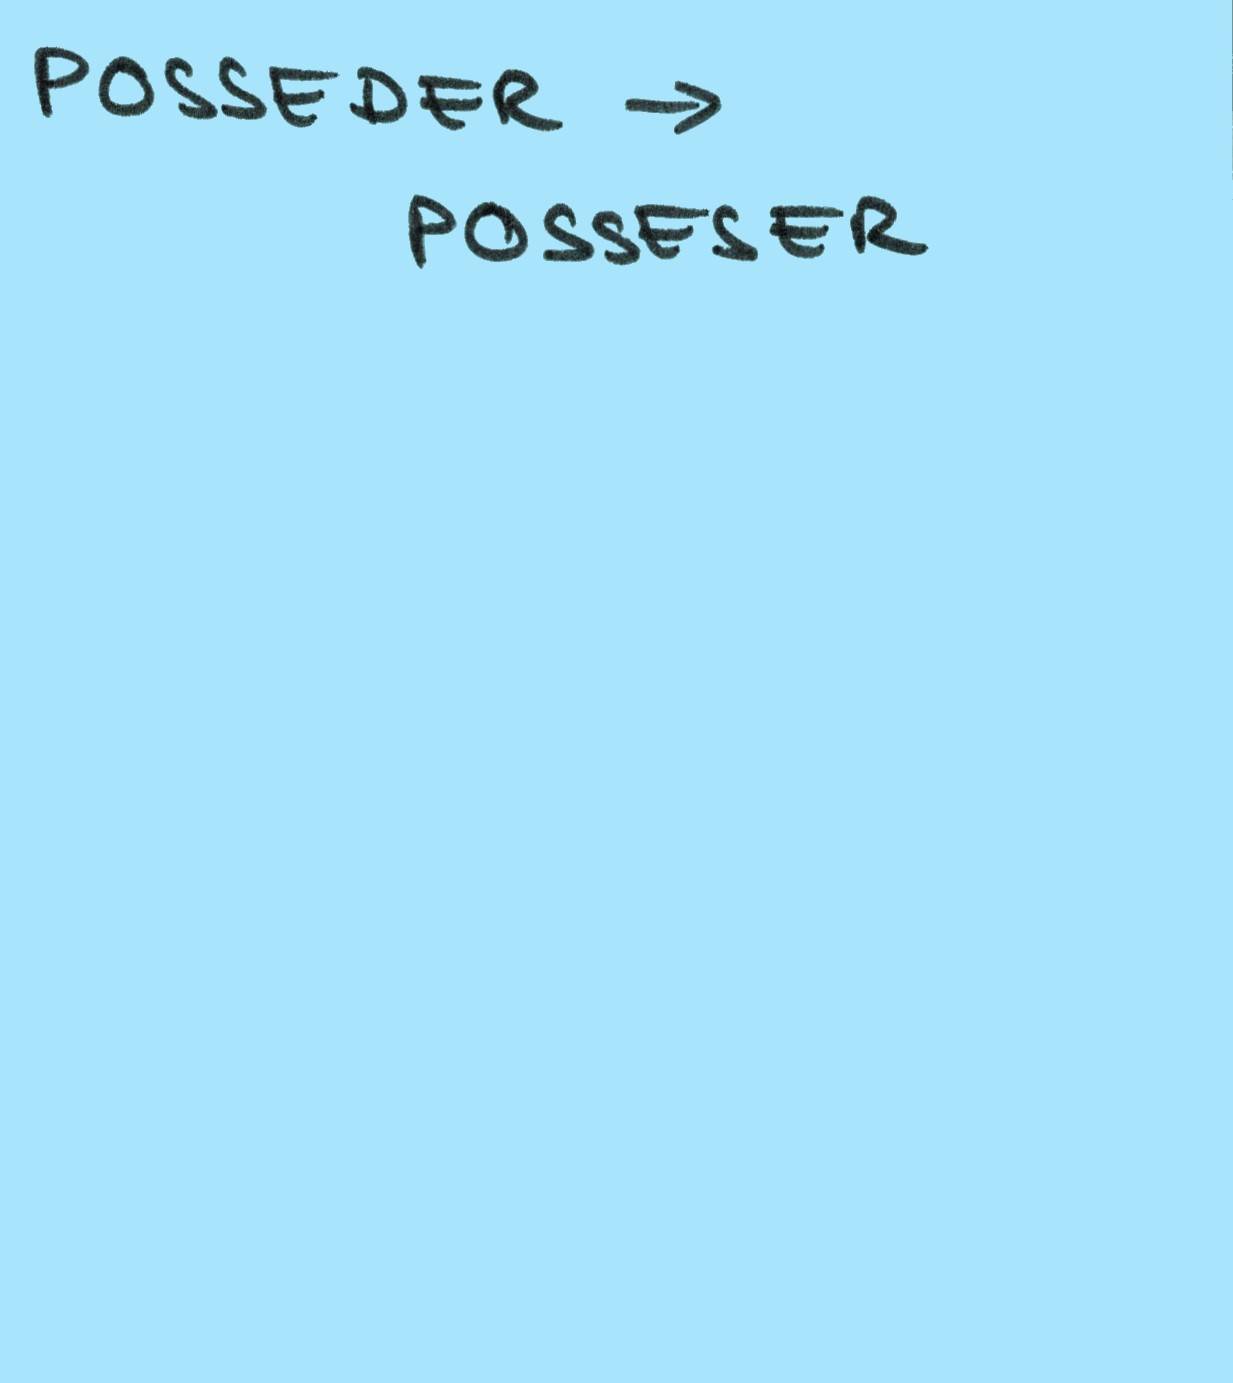 POSSEDER →
POSSESER